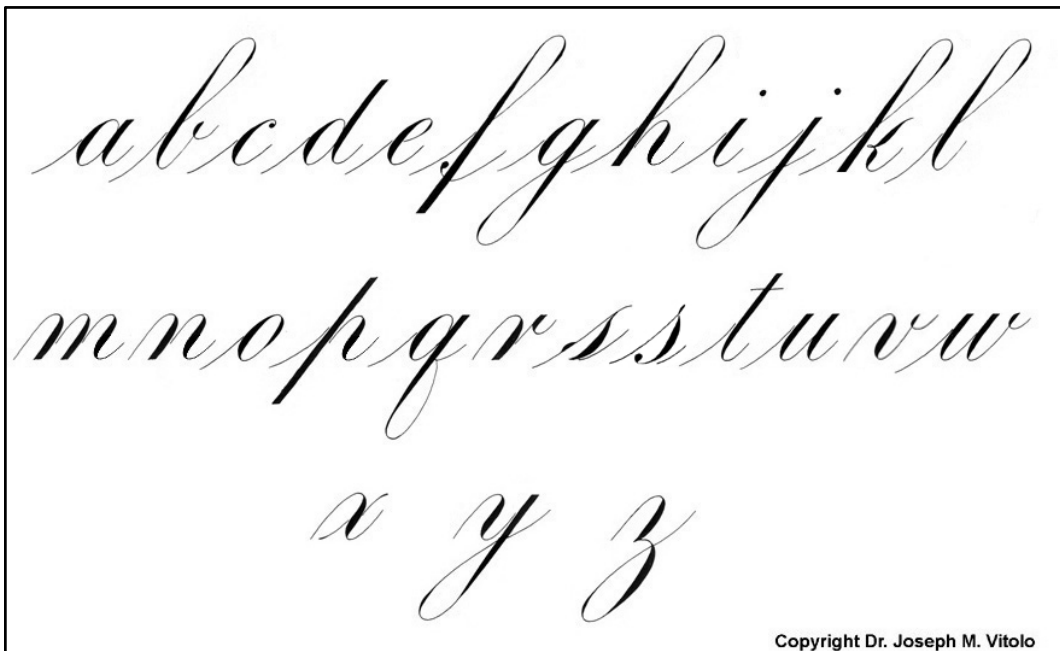 abcdefghijkl
mnopqrsstuvw
x y z
Copyright Dr. Joseph M. Vitolo